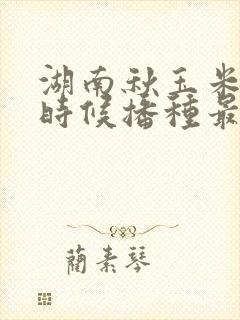 湖南秋玉米
時候播種最
蘭素琴